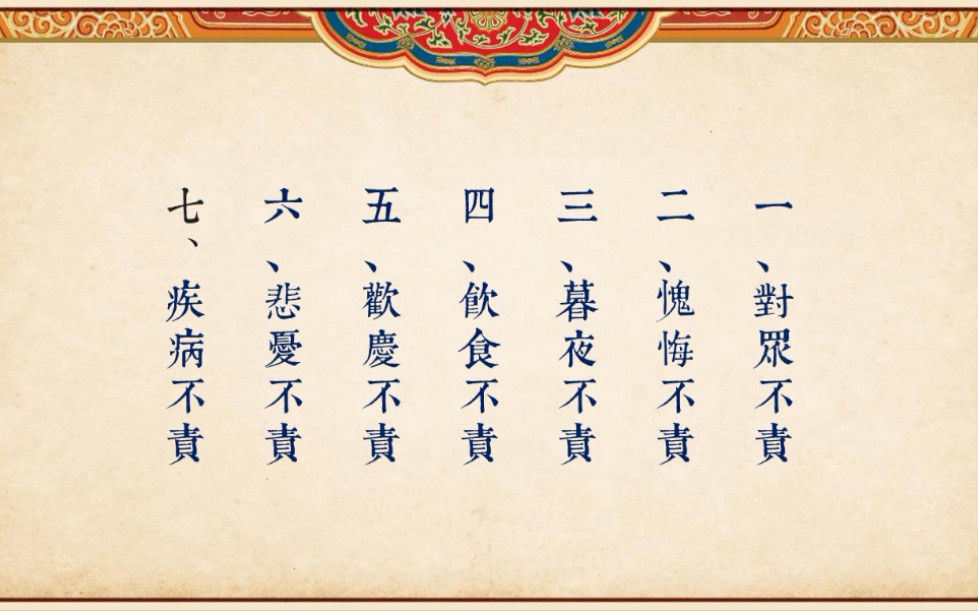 一、對眾不責
二、愧悔不責
三、暮夜不責
四、飲食不責
五、歡慶不責
六、悲憂不責
七、疾病不責